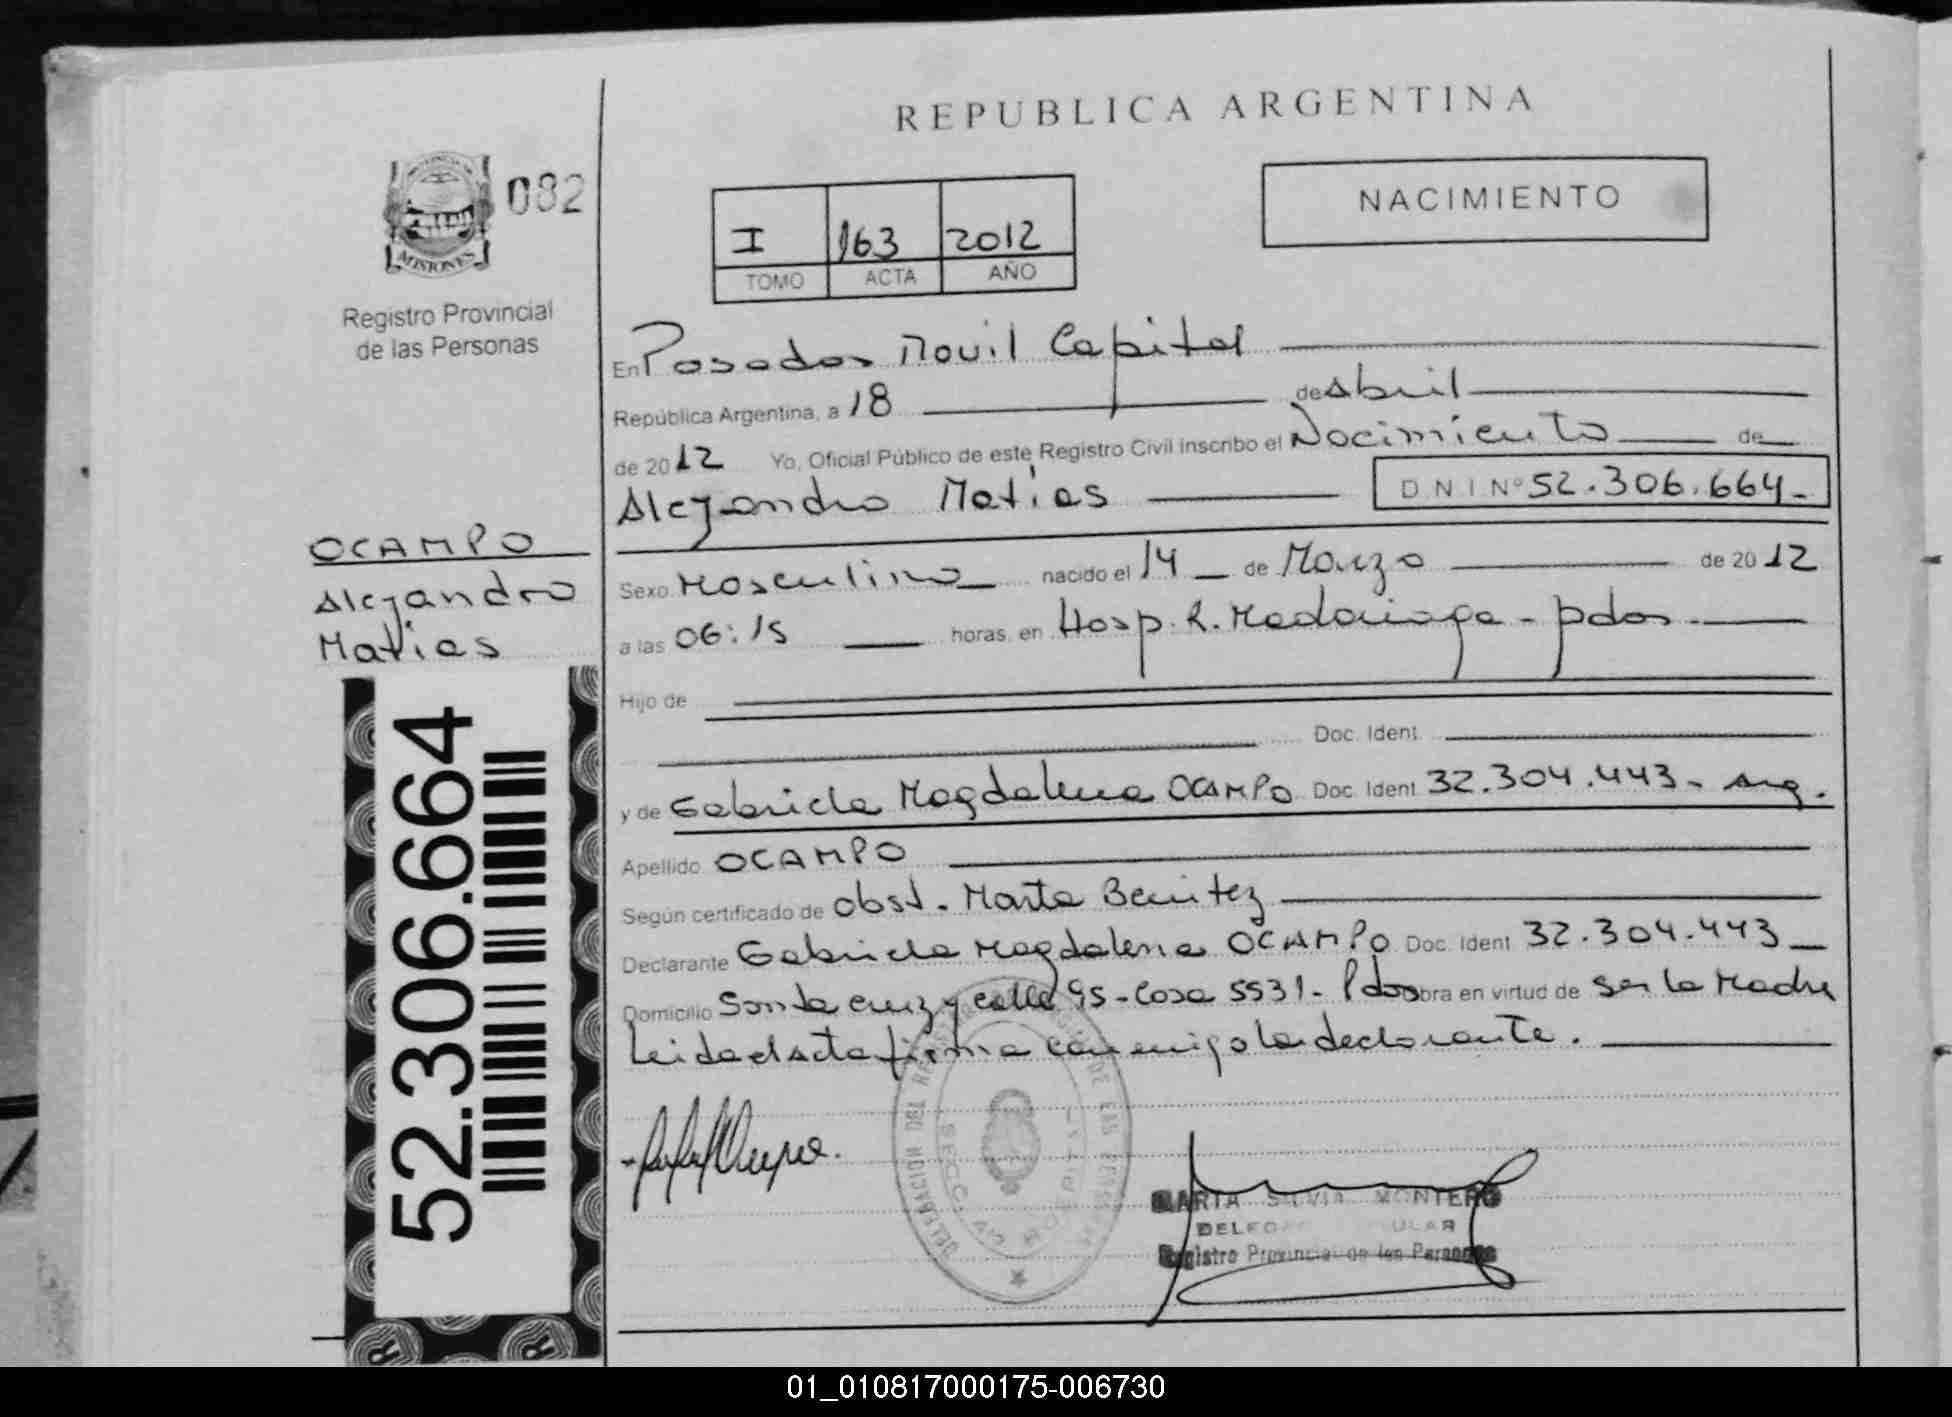 REPUBLICA ARGENTINA
082
MISIONES
Registro Provincial
de las Personas
NACIMIENTO
I 163 2012
TOMO ACTA AÑO
En Posadas Movil Capital
República Argentina, a 18 de Abril
de 2012 Yo, Oficial Público de este Registro Civil inscribo el Nacimiento de
Alejandro Matías D N I Nº 52.306.664-
OCAMPO
Alejandro
Matias
Sexo Masculino nacido el 14 de Marzo de 2012
a las 06:15 horas, en Hosp. R. Madariaga - pdas.
Hijo de
Doc. Ident.
y de Gabriela Magdalena OCAMPO Doc. Ident. 32.304.443- Arg.
Apellido OCAMPO
Según certificado de obst. Marta Benitez
Declarante Gabriela Magdalena OCAMPO Doc. Ident. 32.304.443
Domicilio Santa cruz y calle 95 - Casa 5531 - Pdas obra en virtud de ser la Madre
Leida el Acta firma conmigo la declarante.
52.306.664
DELEGACION DEL DE LAS PERSONAS
SECC.
MARTA SILVIA MONTERO
Registro Provincial de las Personas
01_010817000175-006730